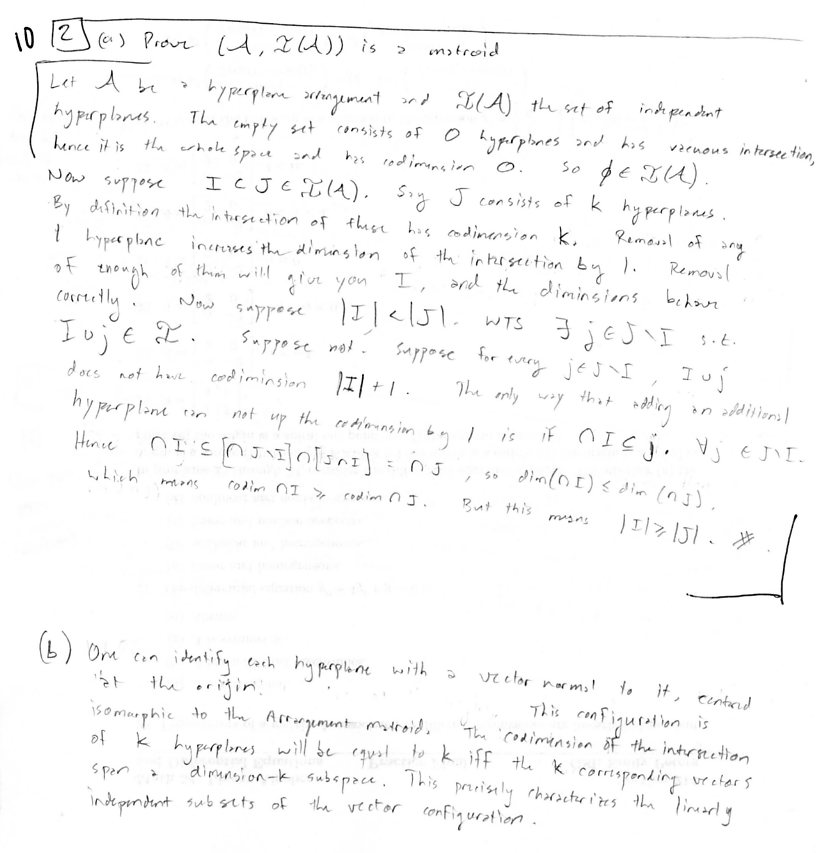 10 [2] (a) Prove (A, I(A)) is a matroid
Let A be a hyperplane arrangement and I(A) the set of independent
hyperplanes. The empty set consists of 0 hyperplanes and has vacuous intersection,
hence it is the whole space and has codimension 0. So ϕ ∈ I(A).
Now suppose I ⊂ J ∈ I(A). Say J consists of k hyperplanes.
By definition the intersection of these has codimension k. Removal of any
1 hyperplane increases the dimension of the intersection by 1. Removal
of enough of them will give you I, and the dimensions behave
correctly. Now suppose |I| < |J|. WTS ∃ j ∈ J∖I s.t.
I ∪ j ∈ I. Suppose not. Suppose for every j ∈ J∖I, I ∪ j
does not have codimension |I|+1. The only way that adding an additional
hyperplane can not up the codimension by 1 is if ∩I ⊆ j. ∀j ∈ J∖I.
Hence ∩I ⊆ [∩J∖I]∩[J∩I] = ∩J, so dim(∩I) ≤ dim(∩J).
which means codim ∩I ≥ codim ∩J. But this means |I| ≥ |J|. #.
(b) One can identify each hyperplane with a vector normal to it, centered
"at the origin." This configuration is
isomorphic to the Arrangement matroid. The codimension of the intersection
of k hyperplanes will be equal to k iff the k corresponding vectors
span a dimension-k subspace. This precisely characterizes the linearly
independent subsets of the vector configuration.